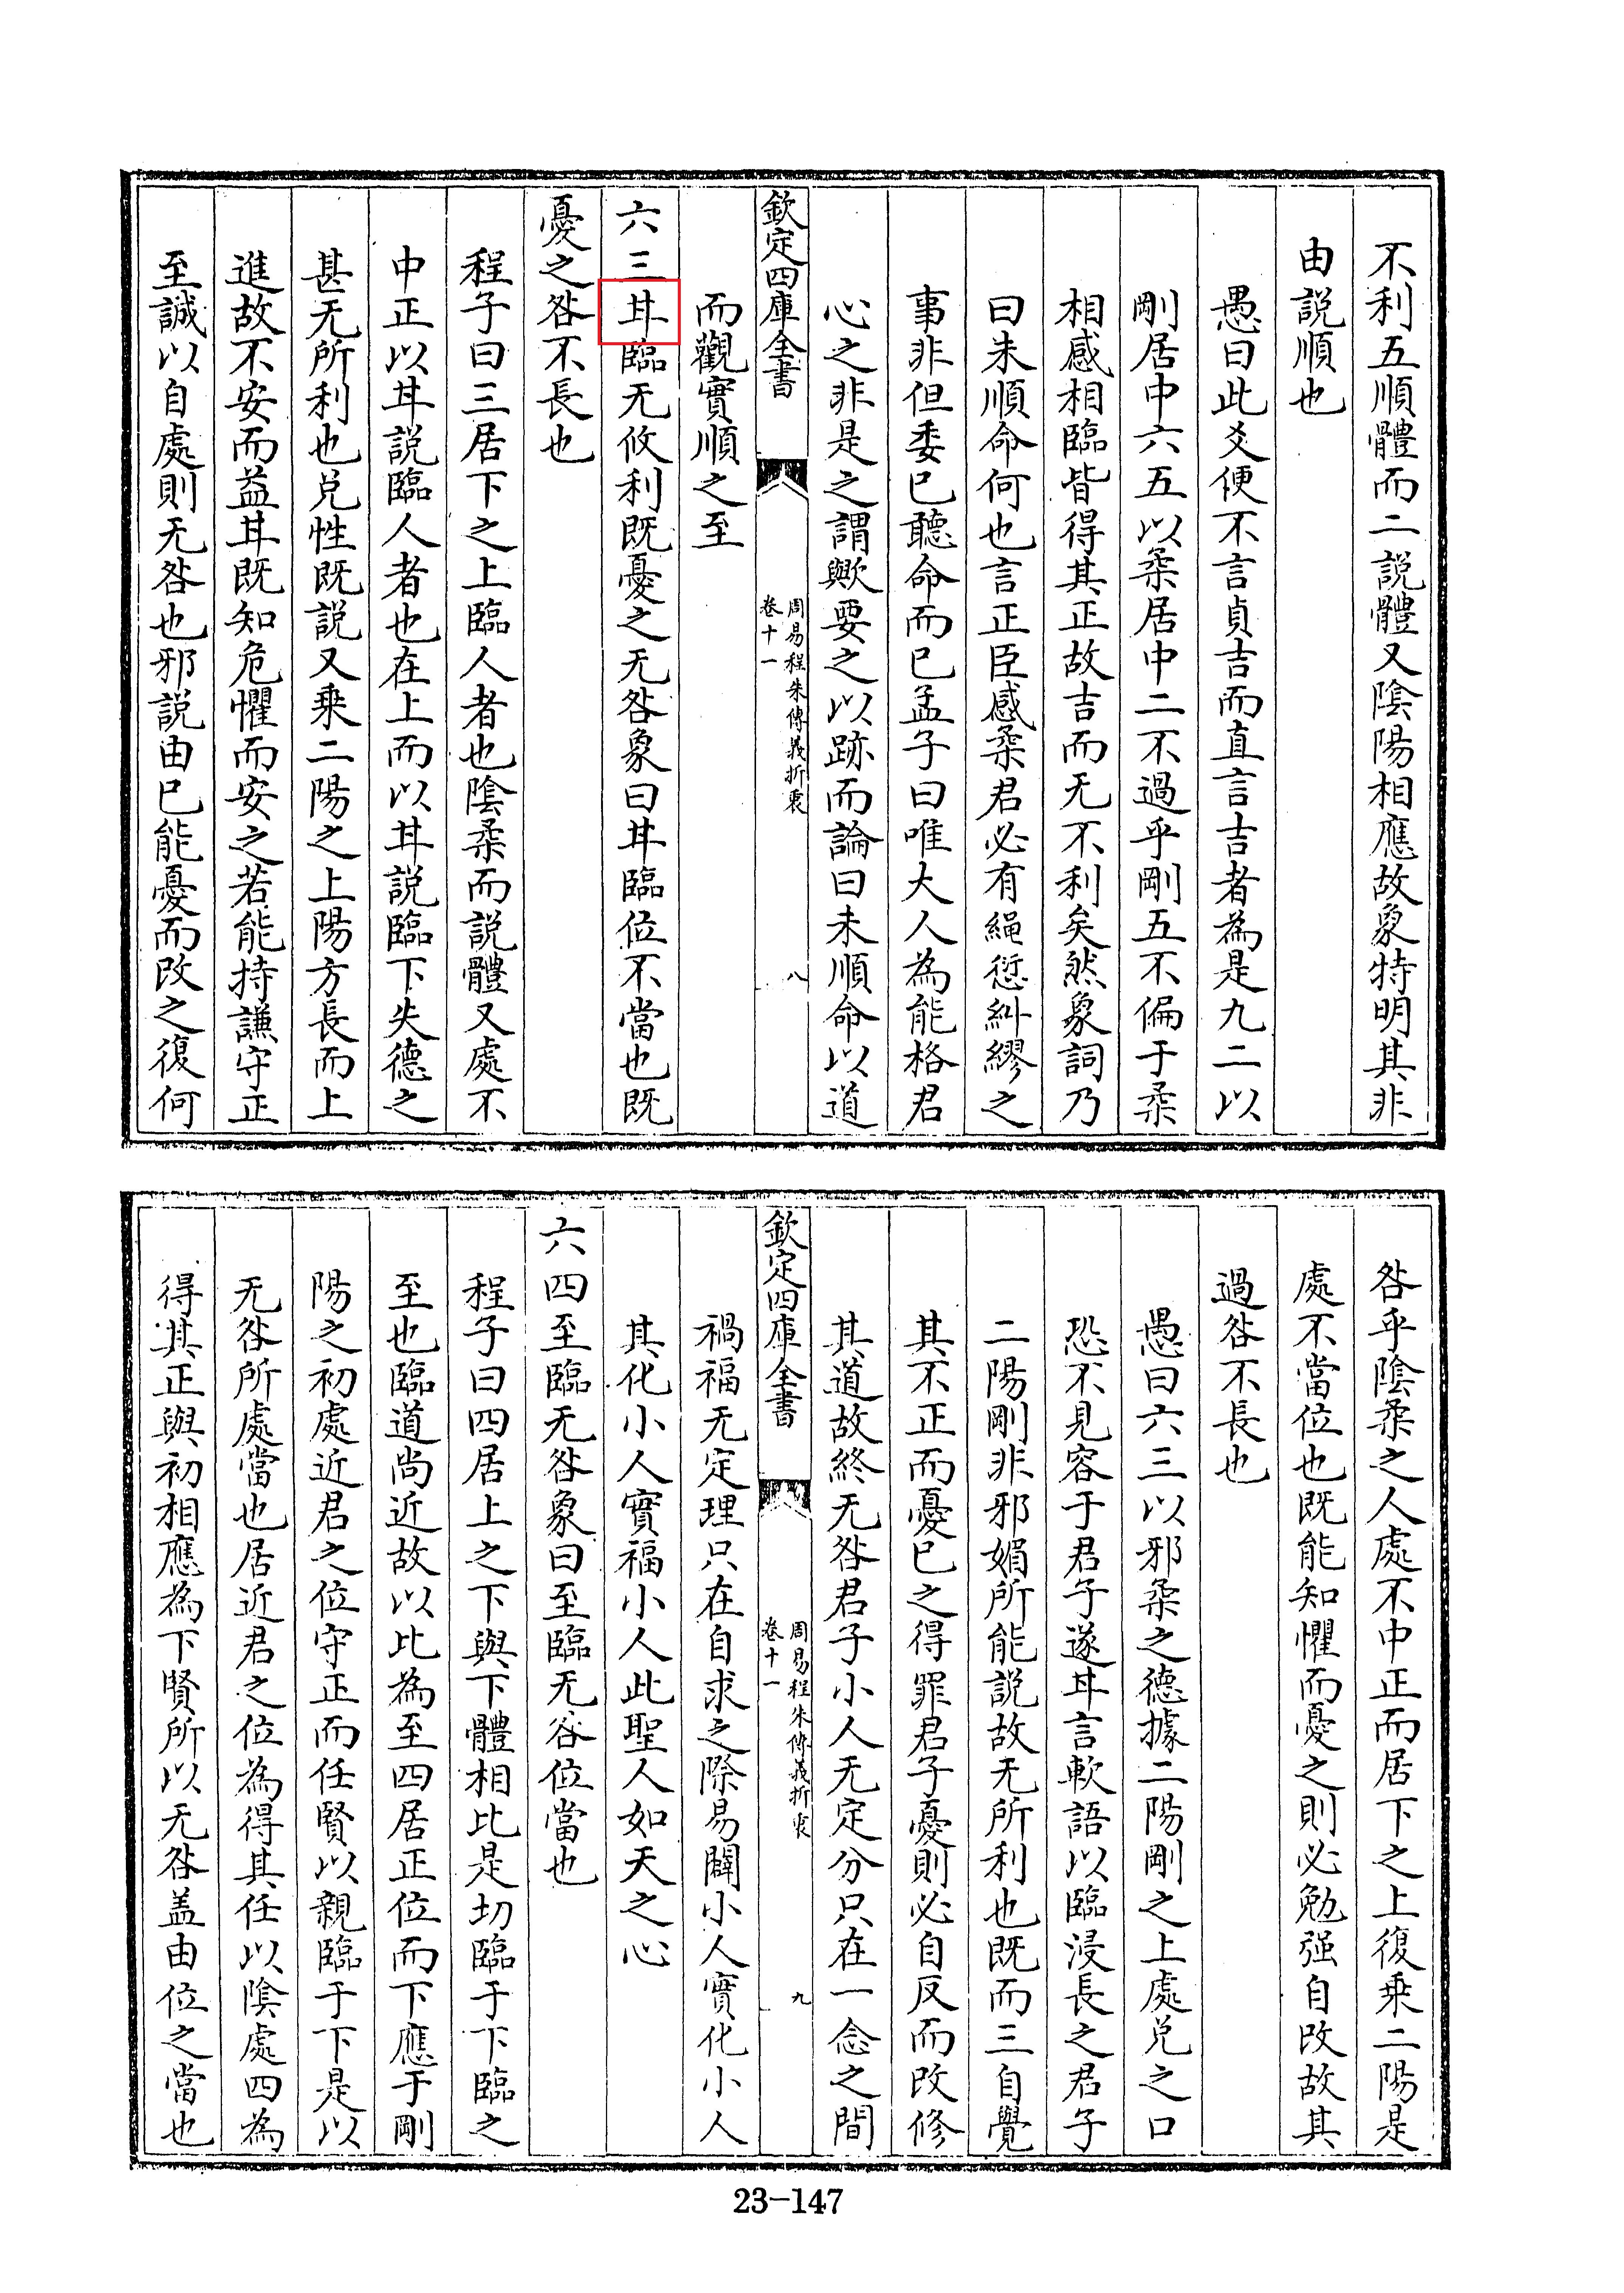 不利五順體而二說體又陰陽相應故象特明其非
由說順也
愚曰此爻便不言貞吉而直言吉者為是九二以
剛居中六五以柔居中二不過乎剛五不偏于柔
相感相臨皆得其正故吉而无不利矣然象詞乃
曰未順命何也言正臣感柔君必有繩愆糾繆之
事非但委已聽命而已孟子曰唯大人為能格君
心之非是之謂歟要之以跡而論曰未順命以道
欽定四庫全書
周易程朱傳義折衷
卷十一
八
而觀實順之至
六三甘臨无攸利既憂之无咎象曰甘臨位不當也既
憂之咎不長也
程子曰三居下之上臨人者也陰柔而說體又處不
中正以甘說臨人者也在上而以甘說臨下失德之
甚无所利也兌性既說又乗二陽之上陽方長而上
進故不安而益甘既知危懼而安之若能持謙守正
至誠以自處則无咎也邪說由已能憂而改之復何
咎乎陰柔之人處不中正而居下之上復乗二陽是
處不當位也既能知懼而憂之則必勉强自改故其
過咎不長也
愚曰六三以邪柔之德據二陽剛之上處兌之口
恐不見容于君子遂甘言軟語以臨浸長之君子
二陽剛非邪媚所能說故无所利也既而三自覺
其不正而憂已之得罪君子憂則必自反而改修
其道故終无咎君子小人无定分只在一念之間
欽定四庫全書
周易程朱傳義折衷
卷十一
九
禍福无定理只在自求之際易闢小人實化小人
其化小人實福小人此聖人如天之心
六四至臨无咎象曰至臨无咎位當也
程子曰四居上之下與下體相比是切臨于下臨之
至也臨道尚近故以比為至四居正位而下應于剛
陽之初處近君之位守正而任賢以親臨于下是以
无咎所處當也居近君之位為得其任以陰處四為
得其正與初相應為下賢所以无咎盖由位之當也
23-147